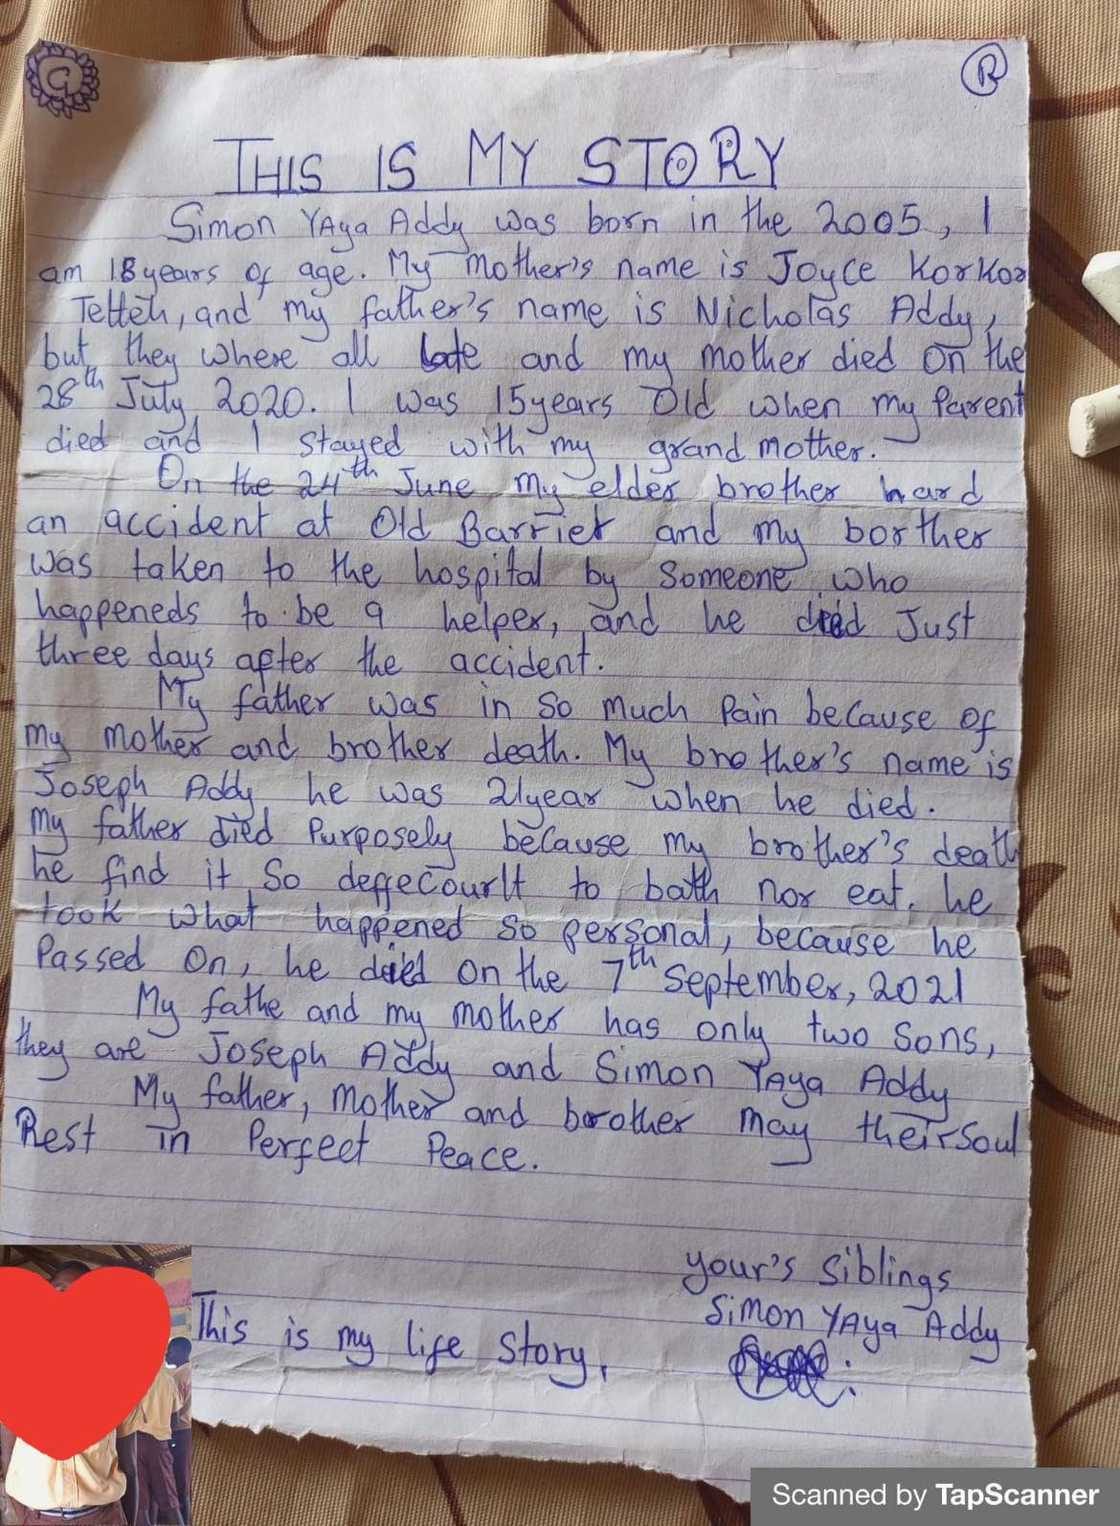 G
R
THIS IS MY STORY
Simon YAya Addy was born in the 2005, I
am 18years of age. My mother's name is Joyce Korkor
Tetteh, and my father's name is Nicholas Addy,
but they where all late and my mother died on the
28th July 2020. I was 15years Old when my Parent
died and I stayed with my grand mother.
On the 24th June my elder brother hard
an accident at Old Barrier and my borther
was taken to the hospital by Someone who
happeneds to be a helper, and he died Just
three days after the accident.
My father was in So much Pain because of
my mother and brother death. My brother's name is
Joseph Addy he was 21year when he died.
My father died Purposely because my brother's death
he find it So deffecourlt to bath nor eat. he
took what happened so personal, because he
Passed On, he died on the 7th September, 2021
My fathe and my mother has only two Sons,
they are Joseph Addy and Simon YAya Addy
My father, Mother and brother may their Soul
Rest in Perfect Peace.
your's Siblings
Simon YAya Addy
This is my life Story,
Scanned by TapScanner